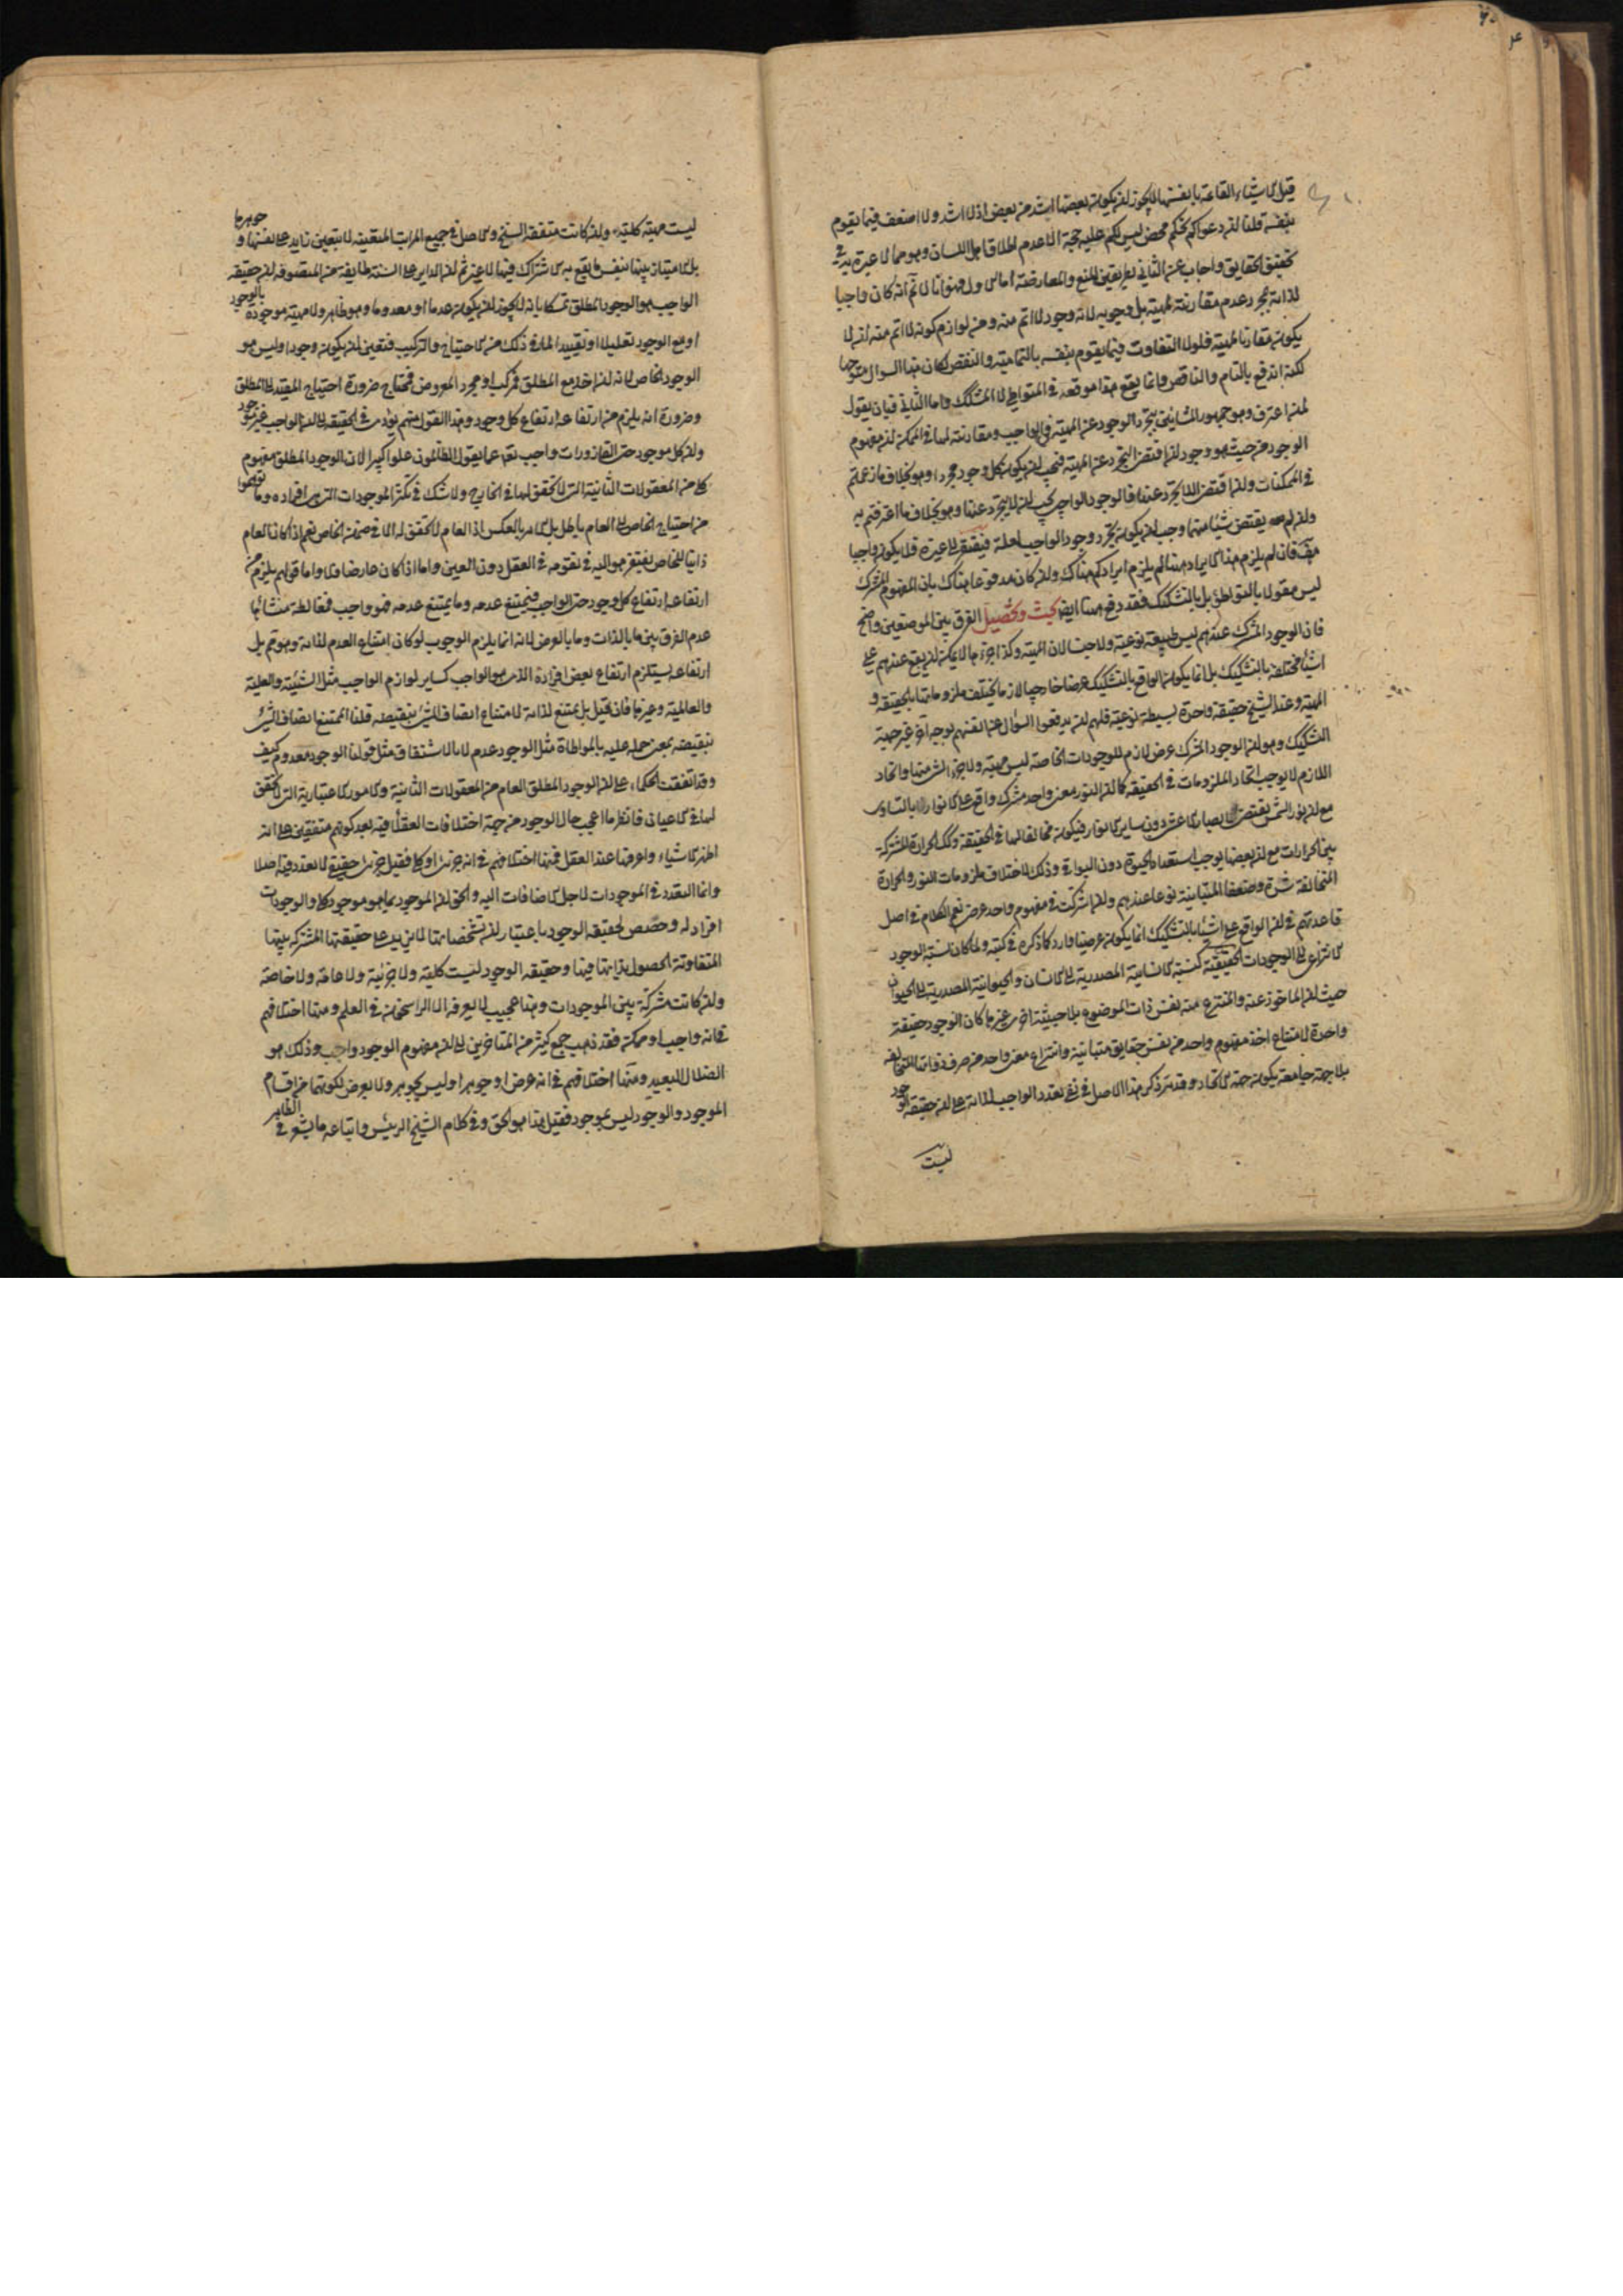 قيل الاشياء القائمة بانفسها لا يجوز ان يكون بعضها اشد من بعض اذ لا اشد ولا اضعف فيما يقوم
بنفسه قلنا ان دعواكم تحكم محض ليس لكم عليه حجة الا عدم اطلاق اهل اللسان وهو مما لا عبرة به في
تحقيق الحقايق واجاب عن الثاني بطريقين المنع والمعارضة اما الاول فهو انا لا نم انه كان واجبا
لذاته بمجرد عدم مقارنته لمهية بل وجوبه لانه وجود لا اتم منه ومن لوازم كونه لا اتم منه ان لا
يكون مقارنا لمهية فلولا التفاوت فيما يقوم بنفسه بالتمامية والنقص لكان هذا السوال متوجها
لكنه اندفع بالتام والناقص وانما يقع هذا موقعه في المتواطى لا المشكك واما الثاني فبان يقول
لمن اعترف وهو جمهور المشائين بتجرد الوجود عن المهية في الواجب ومقارنته لها في الممكن ان مفهوم
الوجود من حيث هو وجود ان اقتضى التجرد عن المهية فيجب ان يكون كل وجود مجردا وهو بخلاف ما زعمتم
في الممكنات وان اقتضى اللا تجرد عنها فالوجود الواجبى يجب ان لا يتجرد عنها وهو بخلاف ما اعترفتم به
وان لم يقتض شيئا منهما وجب ان يكون تجرد وجود الواجب لعلة فيفتقر الى غيره فلا يكون واجبا
هف فان لم يلزم هذا الايراد ههنا لم يلزم ايرادكم هناك وان كان مدفوعا هناك بان المفهوم المشترك
ليس مقولا بالتواطؤ بل بالتشكيك فقد دفع ههنا ايضا بحث وتحصيل الفرق بين الموضعين واضح
فان الوجود المشترك عندهم ليس طبيعة نوعية ولا جنسا لان المهية وكذا جزءها لا يمكن ان يقع عندهم على
اشياء مختلفة بالتشكيك بل انما يكون الواقع بالتشكيك عرضا خارجيا لازما يختلف ملزوماتها بالحقيقة و
المهية وعند الشيخ حقيقة واحدة بسيطة نوعية فلهم ان يدفعوا السؤال عن انفسهم بوجه آخر غير جهة
التشكيك وهو ان الوجود المشترك عرض لازم للوجودات الخاصة ليس مهية ولا جزءا لشىء منها واتحاد
اللازم لا يوجب اتحاد الملزومات في الحقيقة كما ان النور معنى واحد مشترك واقع على الانوار لا بالتساوى
مع ان نور الشمس يقتضى ابصار الاعشى دون ساير الانوار فيكون مخالفا لها في الحقيقة وكذلك الحرارة المشتركة
بين الحرارات مع ان بعضها يوجب استعداد الحيوة دون البواقى وذلك لاختلاف ملزومات النور والحرارة
المتخالفة شدة وضعفا المتباينة نوعا عندهم وان اشتركت في مفهوم واحد عرضى نعم الكلام في اصل
قاعدتهم في ان الواقع على اشياء بالتشكيك انما يكون عرضيا وارد كما ذكره في كتبه ولما كان نسبة الوجود
الانتزاعى الى الوجودات الحقيقية كنسبة الانسانية المصدرية الى الانسان والحيوانية المصدرية الى الحيوان
حيث ان الماخوذ عنه والمنتزع منه نفس ذات الموضوع بلا حيثية اخرى غيرها كان الوجود حقيقة
واحدة لامتناع اخذ مفهوم واحد من نفس حقايق متباينة وانتزاع معنى واحد من صرف ذواتها المتخالفة
بلا جهة جامعة يكون جهة الاتحاد وقد مر ذكر هذا الاصل في نفى تعدد الواجب لذاته على ان حقيقة الوجود
ليست
ليست مهية كلية وان كانت متفقة السنخ والاصل في جميع المراتب المتعينة لا بتعين زايد على نفسها وجوهرها
بل الامتياز بينها بنفس ما يقع به الاشتراك فيها لا غير ثم ان الداير على السنة طايفة من المتصوفة ان حقيقة
الواجب هو الوجود المطلق تمسكا بانه لا يجوز ان يكون عدما او معدوما وهو ظاهر ولا مهية موجودة بالوجود
او مع الوجود تعليلا او تقييدا لما في ذلك من الاحتياج والتركيب فتعين ان يكون وجودا وليس هو
الوجود الخاص لانه ان اخذ مع المطلق فمركب او مجرد المعروض فمحتاج ضرورة احتياج المقيد الى المطلق
وضرورة انه يلزم من ارتفاعه ارتفاع كل وجود وهذا القول منهم يؤدى في الحقيقة الى ان الواجب غير موجود
وان كل موجود حتى القاذورات واجب تعالى عما يقول الظالمون علوا كبيرا لان الوجود المطلق مفهوم
كلى من المعقولات الثانية التى لا تحقق لها في الخارج ولا شك في تكثر الموجودات التى هى افراده وما توهموا
من احتياج الخاص الى العام باطل بل الامر بالعكس اذ العام لا تحقق له الا في ضمن الخاص نعم اذا كان العام
ذاتيا للخاص يفتقر هو اليه في تقومه في العقل دون العين واما اذا كان عارضا فلا واما قولهم يلزم من
ارتفاعه ارتفاع كل وجود حتى الواجب فيمتنع عدمه وما يمتنع عدمه فهو واجب فمغالطة منشأها
عدم الفرق بين ما بالذات وما بالعرض لانه انما يلزم الوجوب لو كان امتناع العدم لذاته وهو مم بل
ارتفاعه يستلزم ارتفاع بعض افراده الذى هو الواجب كساير لوازم الواجب مثل الشيئية والعلية
والعالمية وغيرها فان قيل بل يمتنع لذاته لامتناع اتصاف الشىء بنقيضه قلنا الممتنع اتصاف الشىء
بنقيضه بمعنى حمله عليه بالمواطاة مثل الوجود عدم لا بالاشتقاق مثل قولنا الوجود معدوم كيف
وقد اتفقت الحكماء على ان الوجود المطلق العام من المعقولات الثانية والامور الاعتبارية التى لا تحقق
لها في الاعيان فانظر ما اعجب حال الوجود من جهة اختلافات العقلاء فيه بعد كونهم متفقين على انه
اظهر الاشياء واعرفها عند العقل فمنها اختلافهم في انه جزئى او كلى فقيل جزئى حقيقى لا تعدد فيه اصلا
وانما التعدد في الموجودات لاجل الاضافات اليه والحق ان الموجود بما هو موجود كلى والوجودات
افراد له وحصص لحقيقة الوجود باعتبار ان تشخصاتها لا يزيد على حقيقتها المشتركة بينها
المتفاوتة الحصول بذاتها فيها وحقيقة الوجود ليست كلية ولا جزئية ولا عامة ولا خاصة
وان كانت مشتركة بين الموجودات وهذا عجيب لا يعرفه الا الراسخون في العلم ومنها اختلافهم
في انه واجب او ممكن فقد ذهب جمع كثير من المتاخرين الى ان مفهوم الوجود واجب وذلك هو
الضلال البعيد ومنها اختلافهم في انه عرض او جوهر او ليس بجوهر ولا بعرض لكونهما من اقسام
الموجود والوجود ليس بموجود فقيل هذا هو الحق وفي كلام الشيخ الرئيس واتباعه ما يشعر في الظاهر